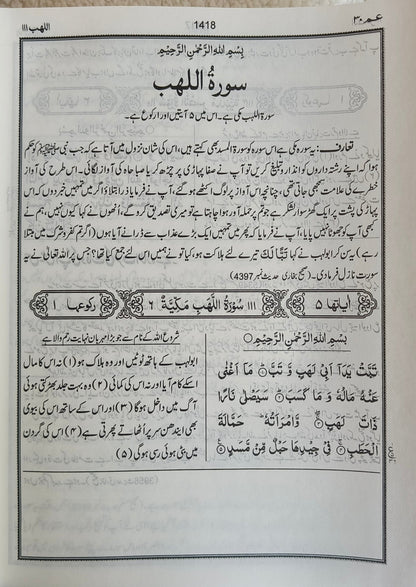 عـمـ ۳۰ 1418 اللهب ۱۱۱
بِسْمِ اللهِ الرَّحْمٰنِ الرَّحِيْمِ
سورةُ اللهب
سورۃ اللہب مکی ہے۔ اس میں ۵ آیتیں اور ۱ رکوع ہے۔
تعارف: یہ سورہ مکی ہے اس سورہ کو سورۃ المسد بھی کہتے ہیں، اس کی شان نزول میں آتا ہے کہ جب نبی ﷺ کو حکم
ہوا کہ اپنے رشتہ داروں کو انذار و تبلیغ کریں تو آپ نے صفا پہاڑی پر چڑھ کر یا صباحاہ کی آواز لگائی۔ اس طرح کی آواز
خطرے کی علامت سمجھی جاتی تھی، چنانچہ اس آواز پر لوگ اکٹھے ہو گئے، آپ نے فرمایا ذرا بتلاؤ اگر میں تمہیں خبر دوں کہ اس
پہاڑ کی پشت پر ایک گھڑ سوار لشکر ہے جو تم پر حملہ آور ہوا چاہتا ہے تو میری تصدیق کرو گے، انھوں نے کہا کیوں نہیں، ہم نے
کبھی آپ کو جھوٹا نہیں پایا، آپ نے فرمایا کہ پھر میں تمہیں ایک بڑے عذاب سے ڈرانے آیا ہوں (اگر تم کفر و شرک میں مبتلا
رہے) یہ سن کر ابولہب نے کہا تَبًّا لَكَ تیرے لئے ہلاکت ہو، کیا تو نے ہمیں اس لئے جمع کیا تھا؟ جس پر اللہ تعالی نے یہ
سورت نازل فرمادی۔ (صحیح بخاری حدیث نمبر 4397)
اٰیاتها ۵ ۱۱۱ سُوْرَةُ اللَّهَبِ مَكِّيَّةٌ ۶ رکوعها ۱
بِسْمِ اللهِ الرَّحْمٰنِ الرَّحِيْمِ
تَبَّتْ يَدَاۤ اَبِيْ لَهَبٍ وَّ تَبَّ مَاۤ اَغْنٰى
عَنْهُ مَالُهٗ وَ مَا كَسَبَ سَيَصْلٰى نَارًا
ذَاتَ لَهَبٍ وَّ امْرَاَتُهٗ حَمَّالَةَ
الْحَطَبِ فِيْ جِيْدِهَا حَبْلٌ مِّنْ مَّسَدٍ
شروع اللہ کے نام سے جو بڑا مہربان نہایت رحم والا ہے
ابولہب کے ہاتھ ٹوٹیں اور وہ ہلاک ہو (۱) نہ اس کا مال
اسکے کام آیا اور نہ اس کی کمائی (۲) وہ بہت جلد بھڑکتی ہوئی
آگ میں داخل ہوگا (۳) اور اس کے ساتھ اس کی بیوی
بھی ایندھن سر پر اُٹھائے پھرتی ہے (۴) اس کی گردن
میں بنی ہوئی رسی ہوگی (۵)